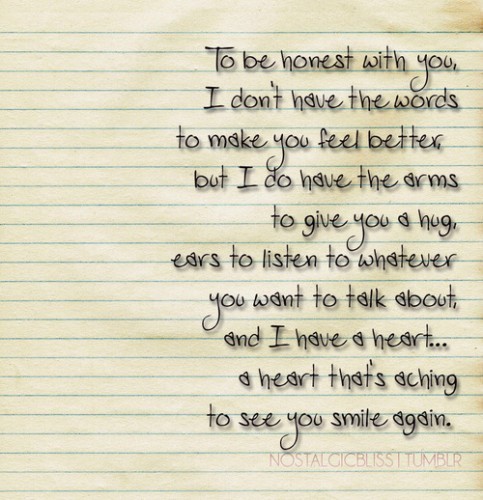 To be honest with you,
I don't have the words
to make you feel better,
but I do have the arms
to give you a hug,
ears to listen to whatever
you want to talk about,
and I have a heart...
a heart that's aching
to see you smile again.
NOSTALGICBLISS | TUMBLR